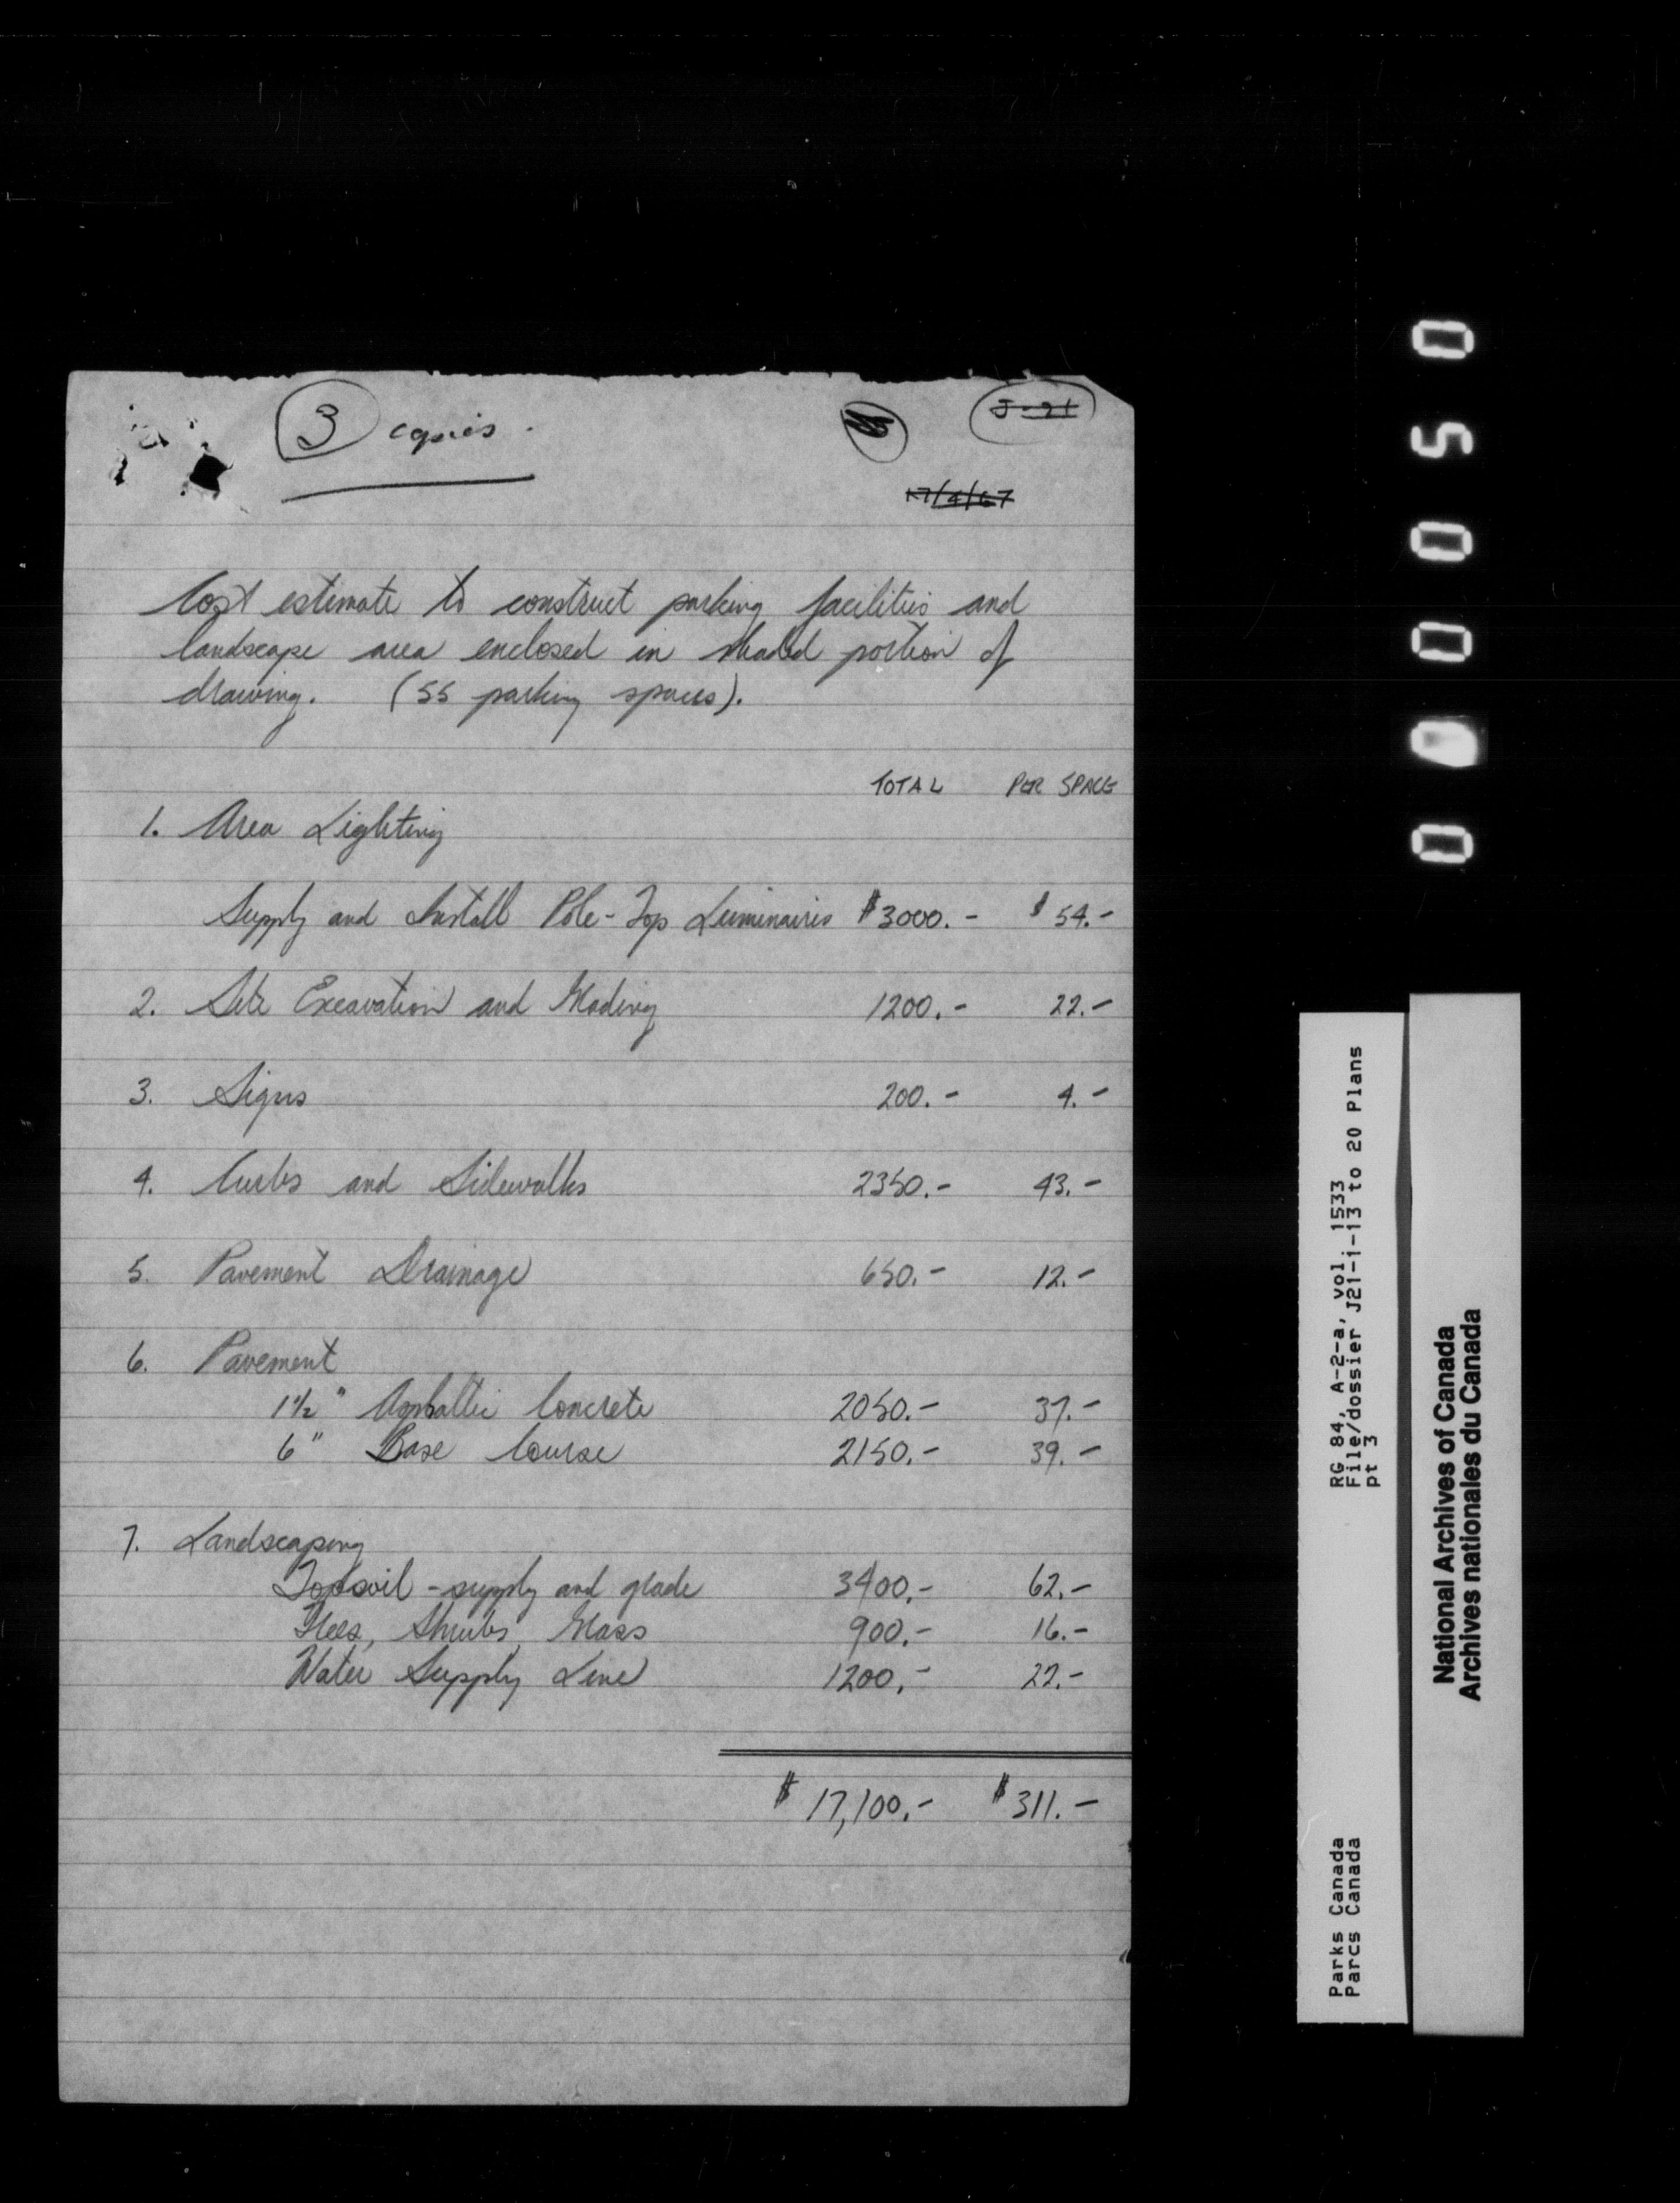 3 copies.
J-21
17/4/67
Cost estimate to construct parking facilities and
landscape area enclosed in shaded portion of
drawing. (55 parking spaces).
TOTAL PER SPACE
1. Area Lighting
Supply and Install Pole-Top Luminaires $3000.- $54.-
2. Site Excavation and Grading 1200.- 22.-
3. Signs 200.- 4.-
4. Curbs and Sidewalks 2350.- 43.-
5. Pavement Drainage 650.- 12.-
6. Pavement
1½" Asphaltic Concrete 2050.- 37.-
6" Base Course 2150.- 39.-
7. Landscaping
Topsoil - supply and grade 3400.- 62.-
Trees, Shrubs, Grass 900.- 16.-
Water Supply Line 1200.- 22.-
$17,100.- $311.-
Parks Canada
Parcs Canada
RG 84, A-2-a, vol. 1533
File/dossier J21-i-13 to 20 Plans
pt 3
National Archives of Canada
Archives nationales du Canada
000050